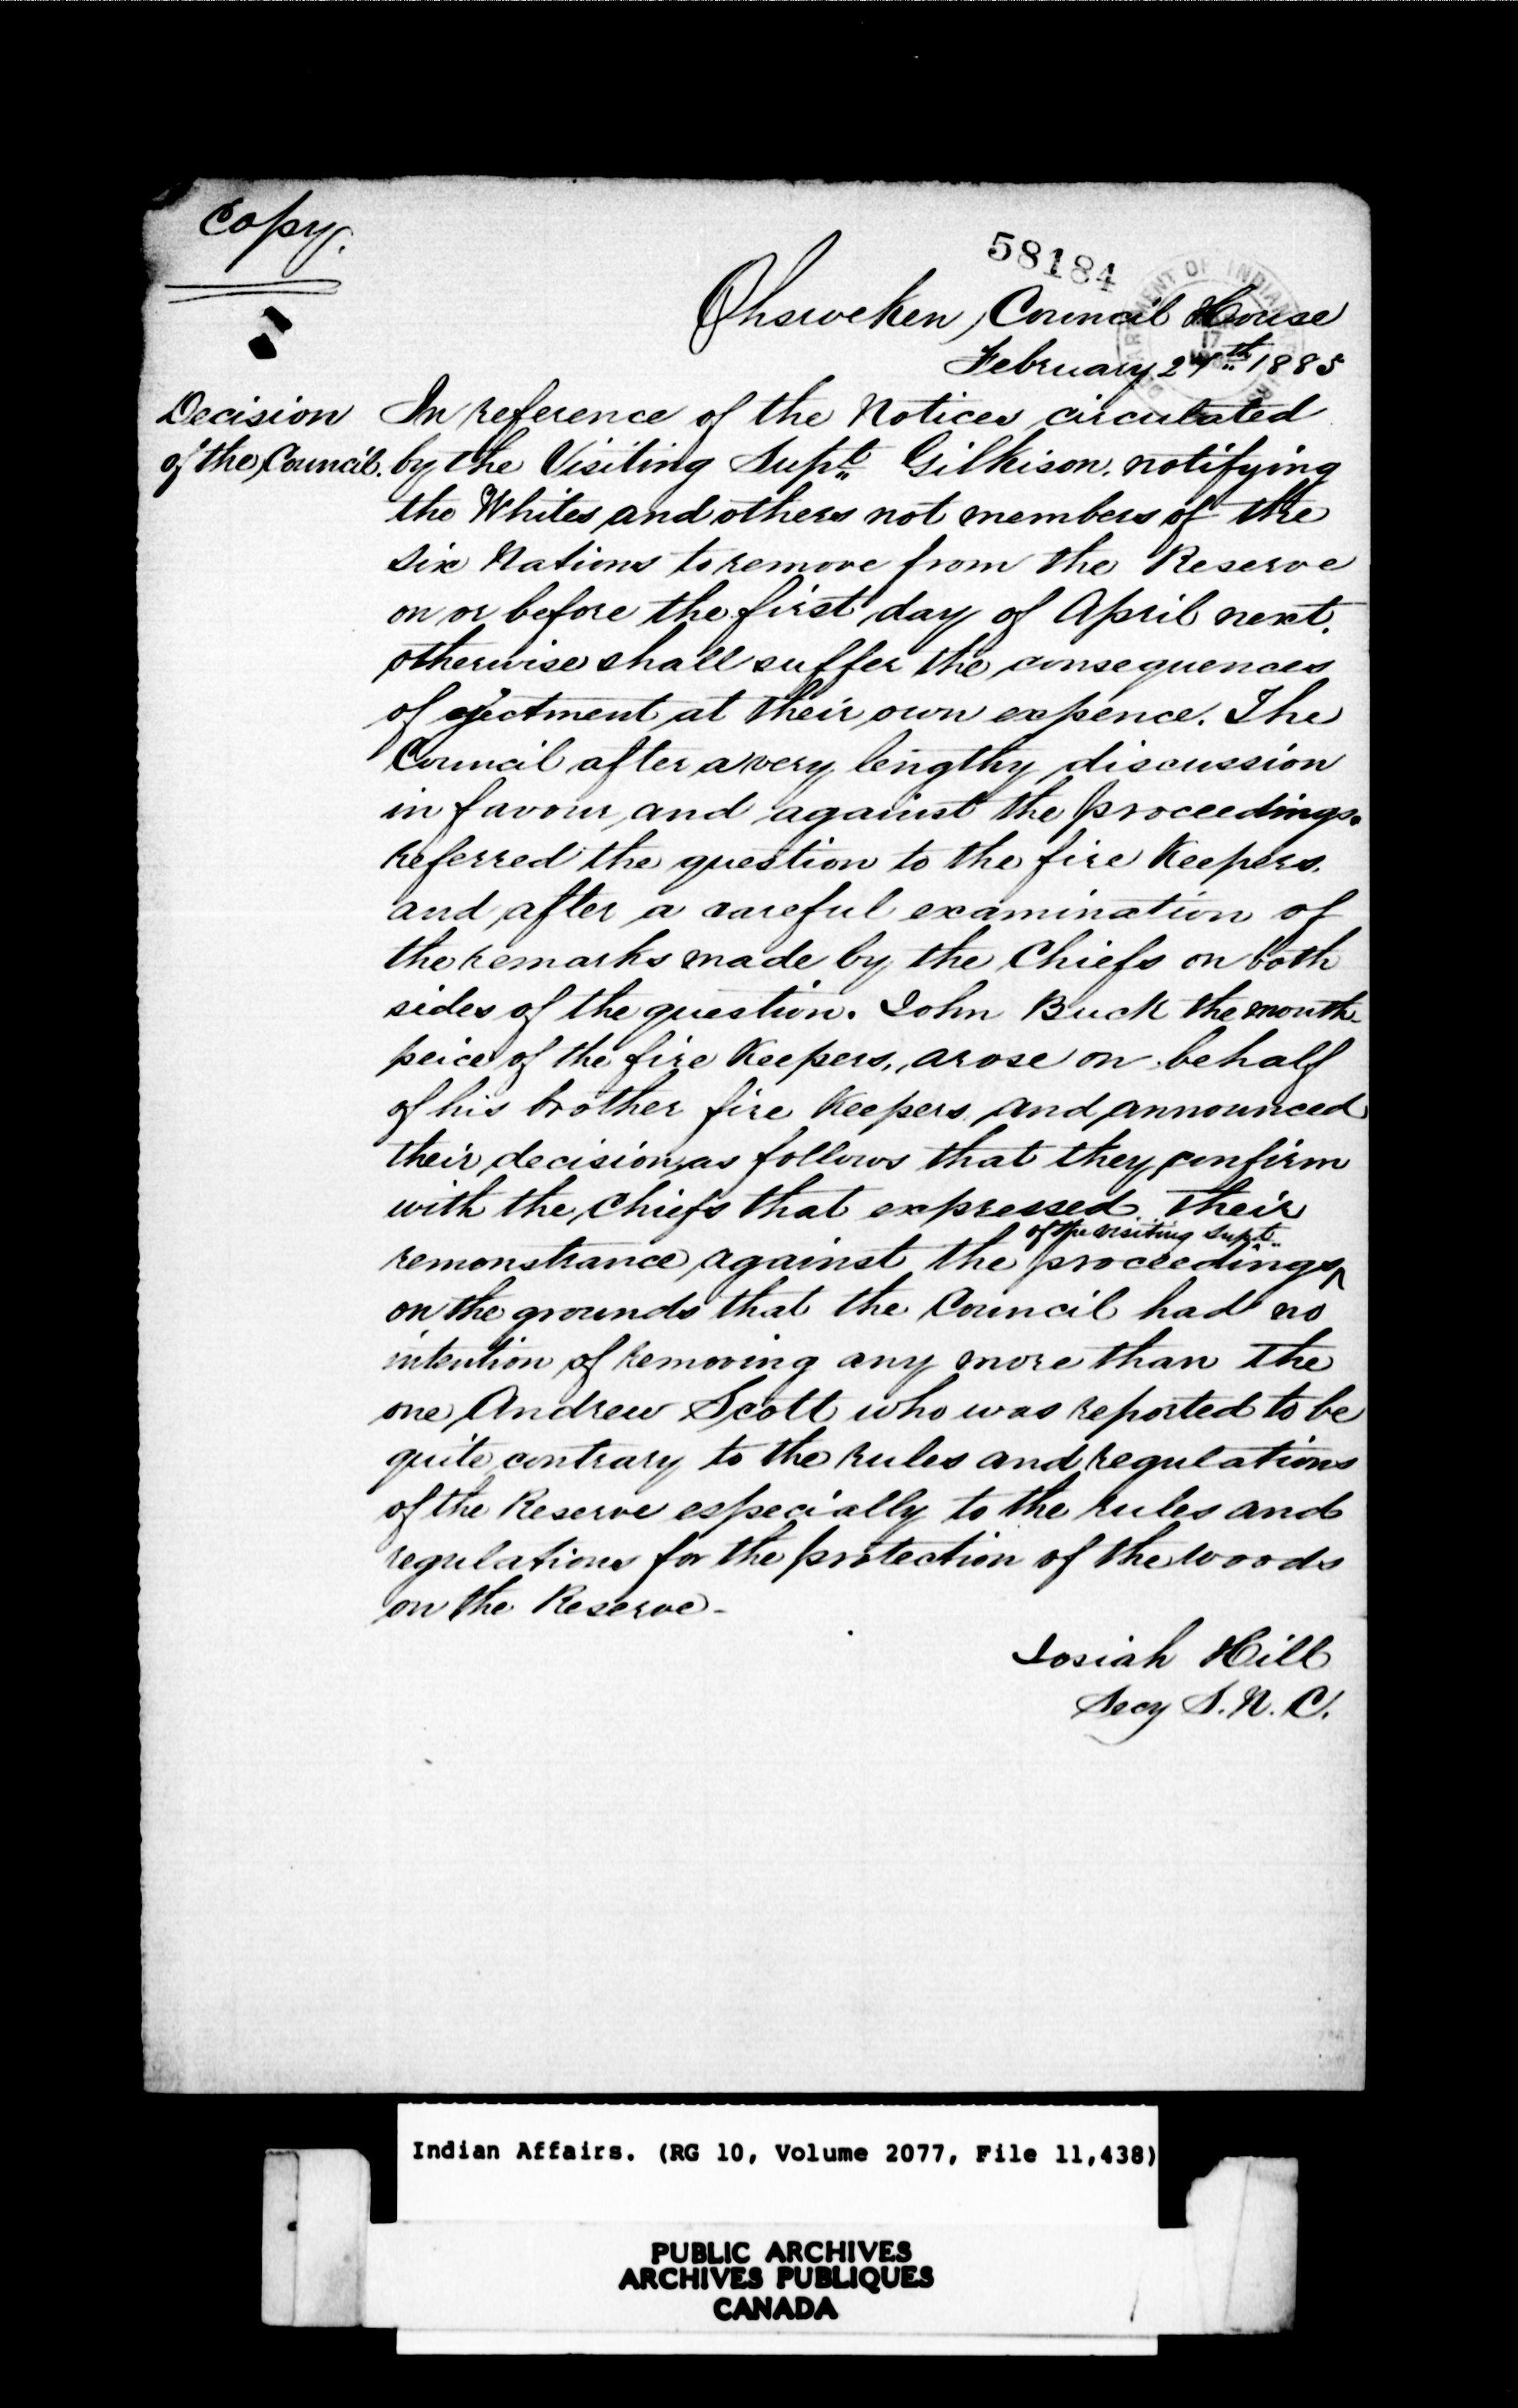 Copy.
58184
Ohsweken, Council House
February 24th 1885
Decision
of the Council.
In reference of the Notices circulated
by the Visiting Supt. Gilkison. notifying
the Whites and others not members of the
Six Nations to remove from the Reserve
on or before the first day of April next.
otherwise shall suffer the consequences
of ejectment at their own expence. The
Council after a very lengthy discussion
in favour and against the proceedings.
referred the question to the fire Keepers.
and after a careful examination of
the remarks made by the Chiefs on both
sides of the question. John Buck the mouth-
peice of the fire Keepers, arose on behalf
of his brother fire Keepers and announced
their decision as follows that they confirm
with the Chiefs that expressed their
of the visiting Supt.
remonstrance against the proceedings^
on the grounds that the Council had no
intention of removing any more than the
one Andrew Scott who was reported to be
quite contrary to the rules and regulations
of the Reserve especially to the rules and
regulations for the protection of the woods
on the Reserve-
Josiah Hill
Secy S. N. C.
Indian Affairs. (RG 10, Volume 2077, File 11,438)
PUBLIC ARCHIVES
ARCHIVES PUBLIQUES
CANADA